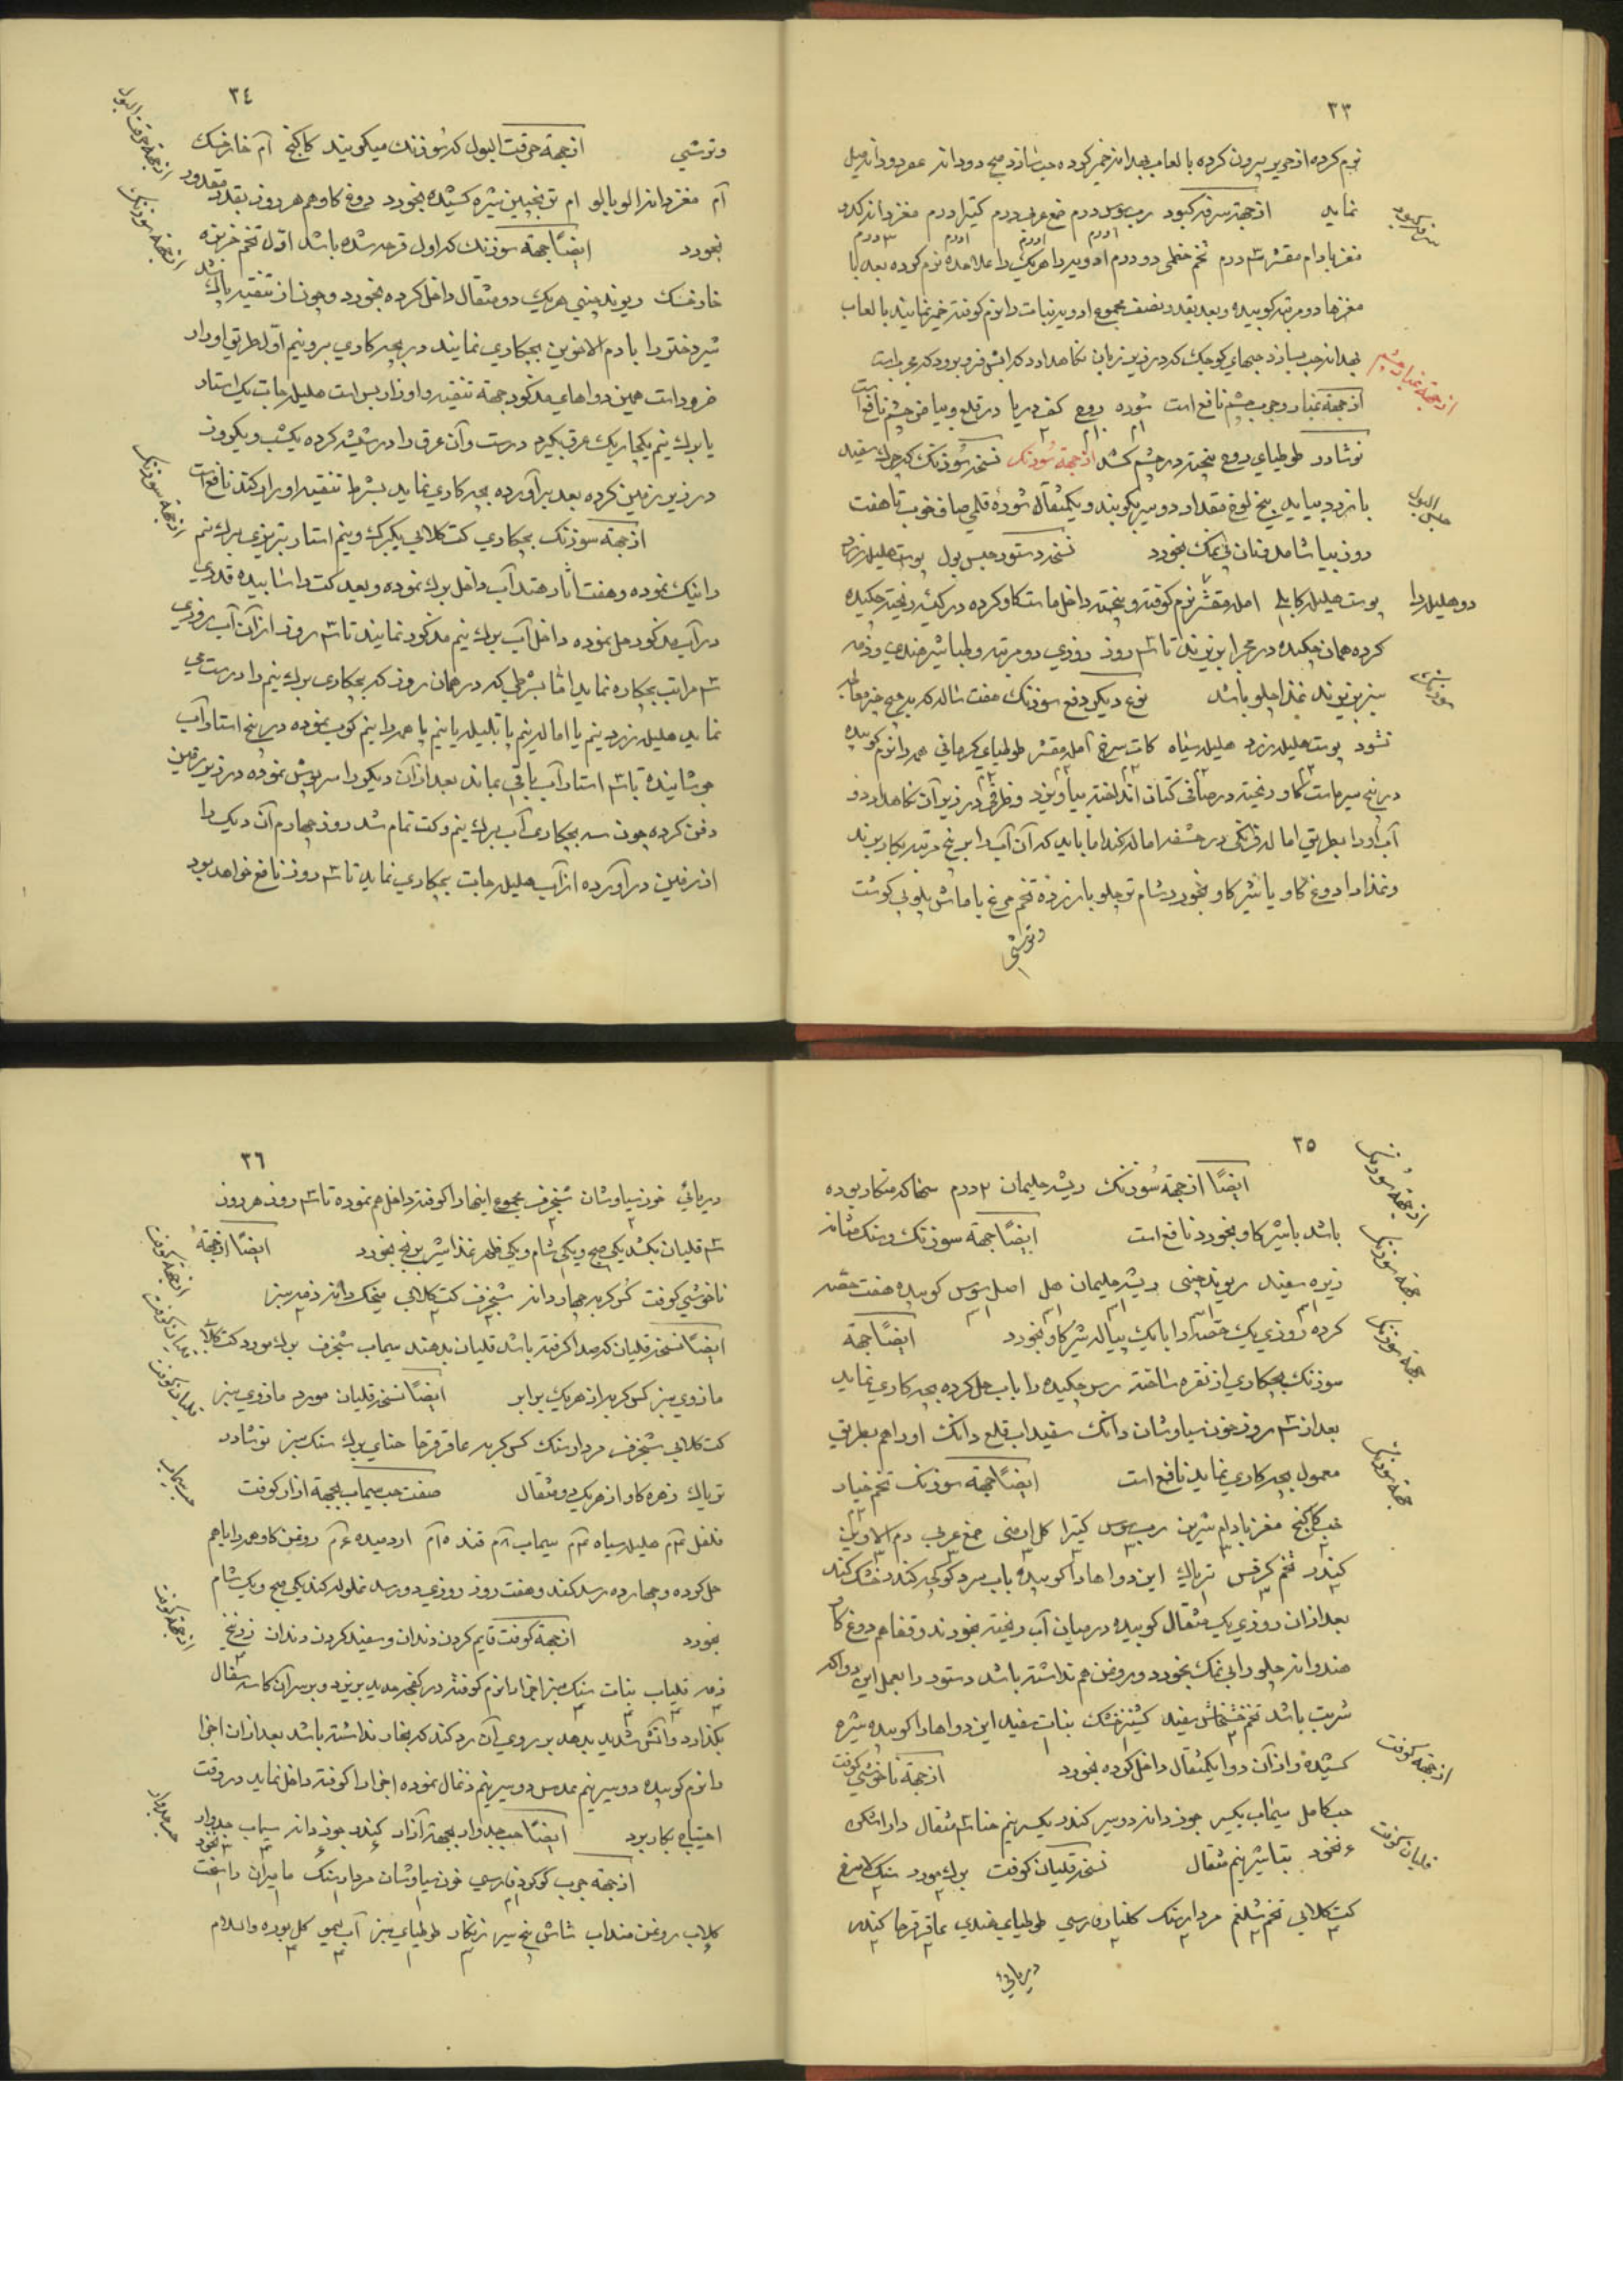 ٢٣
نرم کرده از حریر بیرون کرده با لعاب بهدانه خمیر کرده حب سازد صبح دو دانه عصر دو دانه میل
نماید از جهة سرفه کبود رب سوس درم صمغ عربی درم کتیرا درم مغز دانه کدو
مغز بادام مقشر ٣ درم تخم خطمی دو درم ادویه را هریک را علاحده نرم کرده بعد با
مغزها دو مرتبه کوبیده و بعد بقدر نصف مجموع ادویه نبات را نرم کوفته خمیر نمایند با لعاب
بهدانه حب بسازد حبهای کوچک که در زیر زبان نگاهدارد که آبش فرو برود که مجرب است
از جهة غبار و جرب چشم نافع است شوره روح کف دریا در قلع و بیاض چشم نافع است
نوشادر طوطیای روح پنجته در چشم کشد از جهة سوزنک نسخه سوزنک که چرک سفید
یا زرد بیاید بیخ لوخ مقدار دو سیر بکوبند و یکمثقال شوره قلمی صاف خوب تا هفت
روز بیاشامد و نان بی نمک بخورد نسخه دستور حبس بول پوست هلیله زرد
دو هلیله را پوست هلیله کابلی امله مقشر نرم کوفته و پنجته داخل ماست کاو کرده در کیسه ریخته چکیده
کرده همان چکیده در مجرا بریزند تا ٣ روز روزی دو مرتبه و طباشیر هندی و زمه
سبز بریزند غذا چلو باشد نوع دیکر دفع سوزنک هفت ساله که بهیچ چیز معالجه
نشود پوست هلیله زرد هلیله سیاه کات سرخ آمله مقشر طوطیای کرمانی همه را نرم کوبیده
در پنج سیر ماست کاو ریخته در صافی کتان انداخته بیاویزد و ظرفی در زیر آن نگاهدارد و
آب او را بطریق اماله فرنکی در حشفه اماله کند اما باید که آن آب را به پنج مرتبه بکار برند
و غذا را دوغ کاو یا شیر کاو بخورد و شام تر چلو با زرده تخم مرغ یا ماش پلو بی کوشت
وترشی
٢٤
وترشی از جهة حرقت البول که سوزنک میکویند کاکنج آم خارخسک
آم مغز دانه الو بالو ام ترنجبین شیره کشیده بخورد دوغ کاو هم هر روز بقدر مقدور
بخورد ایضاً جهة سوزنک که اول قرحه شده باشد اول تخم خربزه
خارخسک ریوند چینی هریک دو مثقال داخل کرده بخورد و چون از تنقیه پاک شد
شیر دختر را با دم الاخوین بچکاری نمایند در بچه کاری برونیم اول طریق او دار
ضرور است همین دواهای مذکور جهة تنقیه و اوزار بس است هلیله جات یک استار
یا برک نیم یکچاریک عرق بکیرد درست و آن عرق را در شیشه کرده یکشب و یکروز
در زیر زمین کرده بعد برآورده بچه کاری نماید بشرط تنقیه او را در کند نافع است
از جهة سوزنک بچکاری کت کلابی یکبرک و نیم استار تبریزی برک نیم
را نیک نموده و هفت آثار هند آب داخل برک نموده و بعد کت را سابیده قدری
در آب مذکور حل نموده داخل آب برک نیم مذکور نمایند تا ٣ روز از آن آب روزی
٣ مراتب بچکاره نماید اما بشرطی که در همان روز که بچکاری برک نیم را درست می
نماید هلیله زرد نیم پا اماله نیم پا بلیله پا نیم پا همه را نیم کوب نموده در پنج استار آب
جوشانیده تا ٣ استار آب باقی بماند بعد از آن دیکر را سرپوش نموده در زیر زمین
دفن کرده چون سه بچکاری آب برک نیم و کت تمام شد روز چهارم آن دیک را
از زمین در آورده از آب هلیله جات بچکاری نماید تا ٣ روز نافع خواهد بود
٢٥
ایضاً از جهة سوزنک ریشه حلیمان ٢ درم
باشد با شیر کاو بخورد نافع است ایضاً جهة سوزنک و سنک مثانه
زیره سفید ریوند چینی ریشه حلیمان هل اصل سوس کوبیده هفت حصه
کرده روزی یک حصه را با یک پیاله شیر کاو بخورد ایضاً جهة
سوزنک بچکاری از نقره ساخته رس چکیده را با آب حل کرده بچه کاری نماید
بعد از ٣ روز خون سیاوشان دانک سفیداب قلع دانک او را هم بطریق
معمول بچه کاری نماید نافع است ایضاً جهة سوزنک تخم خیار
حب کاکنج مغز بادام شیرین رب سوس کتیرا کل ارمنی صمغ عربی دم الاخوین
کندر تخم کرفس تریاک این دواها را کوبیده با آب سرد کوکچه کنند و خشک کنند
بعد از آن روزی یک مثقال کوبیده در میان آب ریخته بخورند و قفاهم دوغ کاو
هندوانه چلو را بی نمک بخورد و روغن هم نداشته باشد دستور را بعمل این دوا که
شربت باشد تخم خشخاش سفید کشنیز خشک نبات سفید این دواها را کوبیده شیره
کشیده و از آن دوا یکمثقال داخل کرده بخورد از جهة ناخوشی کوفت
حب کامل سیماب یکسیر جوز دانه دو سیر کندر یکسر نیم حنا ٣ مثقال دار اشکن
٤ نخود بتاشیر نیم مثقال نسخه قلیان کوفت برک مورد سنک لامرغ
کت کلابی تخم شلغم مردارسنک کلنار فارسی طوطیای هندی عاقرقرحا کندر
دبرمائی
٢٦
دیرمائی خون سیاوشان شنجرف مجموع اینها را کوفته داخل هم نموده تا ٣ روز هر روز
٣ قلیان بکشد یکی صبح و یکی شام و یکی ظهر غذا شیر برنج بخورد ایضاً از جهة
ناخوشی کوفت کس کربه چهار دانه شنجرف کت کلابی میخک دانه زمه سبز
ایضاً نسخه قلیان که صدا کرفته باشد قلیان بدهند سیماب شنجرف برک مورد کت کلابی
مازوی سبز کس کربه از هریک برابر ایضاً نسخه قلیان مورد مازوی سبز
کت کلابی شنجرف مردارسنک کس کربه عاقرقرحا حنای برک سنک سبز نوشادر
تریاک زهره کاو از هریک دو مثقال صفت حب سیماب بجهة ازار کوفت
فلفل ٣م هلیله سیاه ٣م سیماب ٨م قند ١٥م آرد میده ٤م روغن کاو همه را با هم
حل کرده و چهارده رسد کنند و هفت روز روزی دو رسد غلوله کند یکی صبح و یک شام
بخورد از جهة کوفت قایم کردن دندان و سفید کردن دندان زرنیخ
زمه قلیاب نبات سنک سبز اجزا را نرم کوفته در کفچه حدید بریزد و بر سر آن کاسه سفال
بکذارد و آتش شدید بدهد بر روی آن رد کند که بخار نداشته باشد بعد از آن اجزا
را نرم کوبیده دو سیر نیم عدس دو سیر نیم ذغال نموده اجزا را کوفته داخل نماید در وقت
احتیاج بکار برد ایضاً حب جدوار بجهة آزار کندر جوز دانه سیماب جدوار ٣ نخود
از جهة جرب کوکرد فارسی خون سیاوشان مردارسنک مامیران راسخت
کلاب روغن منداب شاش پنج سیر زنکار طوطیای سبز آب لیمو کل بوره والسلام